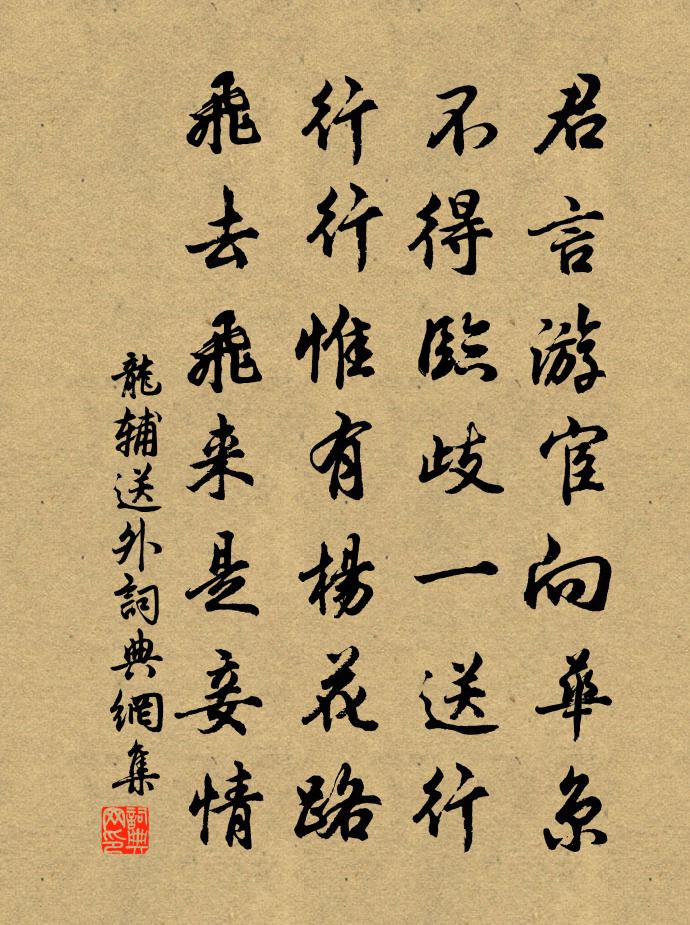 君言游宦向華京
不得臨歧一送行
行行惟有楊花路
飛去飛来是妾情
龍輔送外詞典網集
詞典網印